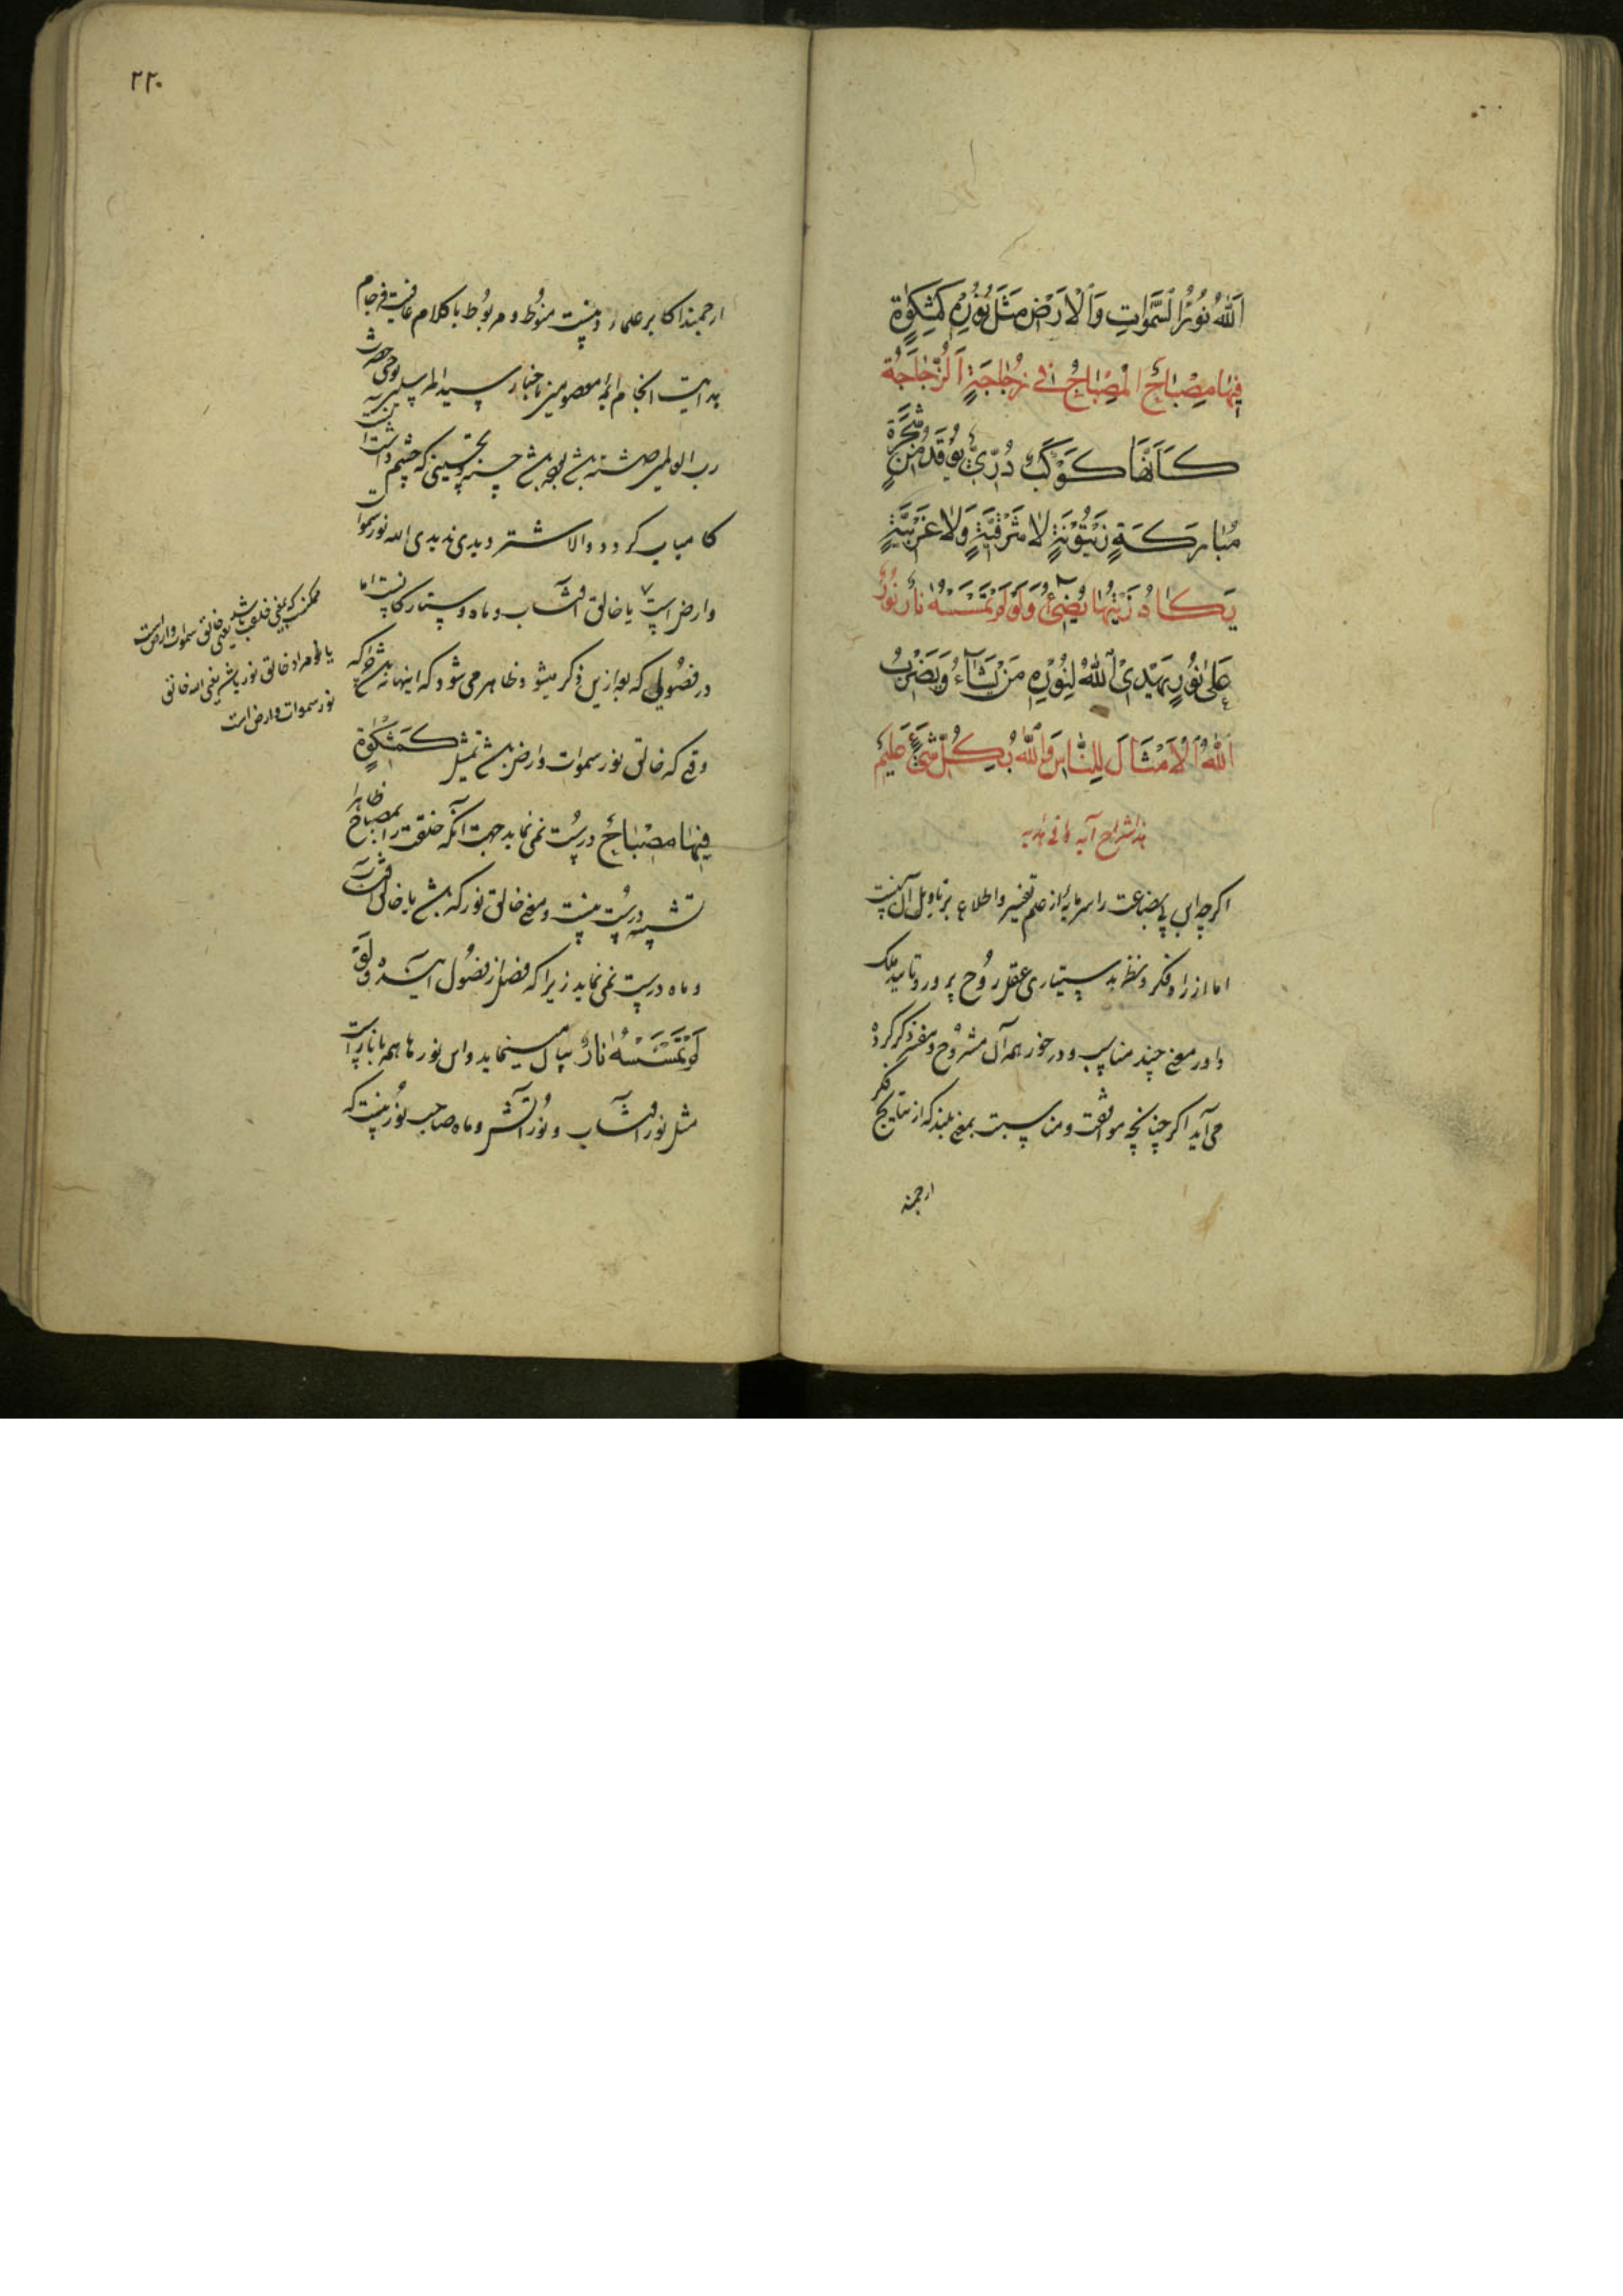 اَللهُ نُورُ السَّمٰوَاتِ وَالْاَرْضِ مَثَلُ نُوْرِهٖ كَمِشْكٰوةٍ
فِيْهَا مِصْبَاحٌ اَلْمِصْبَاحُ فِي زُجَاجَةٍ اَلزُّجَاجَةُ
كَاَنَّهَا كَوْكَبٌ دُرِّيٌّ يُوْقَدُ مِنْ شَجَرَةٍ
مُبَارَكَةٍ زَيْتُوْنَةٍ لَا شَرْقِيَّةٍ وَلَا غَرْبِيَّةٍ
يَكَادُ زَيْتُهَا يُضِيْٓءُ وَلَوْ لَمْ تَمْسَسْهُ نَارٌ نُوْرٌ
عَلٰى نُوْرٍ يَهْدِي اللهُ لِنُوْرِهٖ مَنْ يَشَآءُ وَيَضْرِبُ
اللهُ الْاَمْثَالَ لِلنَّاسِ وَاللهُ بِكُلِّ شَيْءٍ عَلِيْمٌ
اكرچه اين بى بضاعت را سرمايه از علم تفسير و اطلاع بر تاويل آن نيست
اما از راه فكر و نظر بدستيارى عقل روح پرور و تاييد ملك
داور معنى چند مناسب و در خور همه آن مشروح و مفسر ذكر كرده
مى آيد اكر چنانچه موافقت و مناسبت بمعنى بلند كه از نتايج فكر
ارجمند
٢٢٠
ارجمند اكابر علما دنيست منوط و مربوط با كلام عاقبت فرجام
هدايت انجام ائمه معصومين باخبار سيد المرسلين بوحى حضرت
رب العالمين داشته باشد بوجه تحسينى كه چشم داشت است
كامياب كردد والا شتر ديدى نديدى الله نور سموات
وارض است يا خالق آفتاب و ماه و ستاركانست اما
در فصولى كه بعد ازين ذكر ميشود ظاهر مى شود كه اينها نباشد چرا كه
وقتى كه خالق نور سموات وارض باشد تمثيل كَمِشْكٰوةٍ
فِيْهَا مِصْبَاحٌ درست نمى نمايد جهت آنكه خلقت را بمصباح ظاهرا
تشبيه درست نيست و معنى خالق نور كه باشد يا خالق آفتاب
و ماه درست نمى نمايد زيرا كه فصل از فصول آينده وَلَوْ
لَمْ تَمْسَسْهُ نَارٌ بيان مينمايد و اين نورها همه با نار است
مثل نور آفتاب و نور آتش و ماه صاحب نور نيست كه
يعنى خالق سموات وارض است
يا مراد خالق نور باشد يعنى الله خالق
نور سموات وارض است